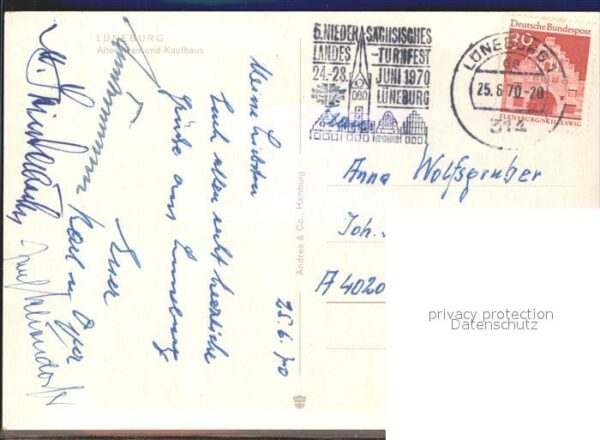 LÜNEBURG
Alter Kran und Kaufhaus
Meine Liebsten
Euch allen recht herzliche
Grüße aus Lüneburg
Euer
Karl u.
25.6.70
Andres & Co., Hamburg
6. NIEDERSÄCHSISCHES
LANDES-TURNFEST
24.-28. JUNI 1970
LÜNEBURG
LÜNEBURG 2
25.6.70-20
314
Deutsche Bundespost
30
FLENSBURG/SCHLESWIG
Frau
Anna Wolfsgruber
Joh.
A 4020
privacy protection
Datenschutz